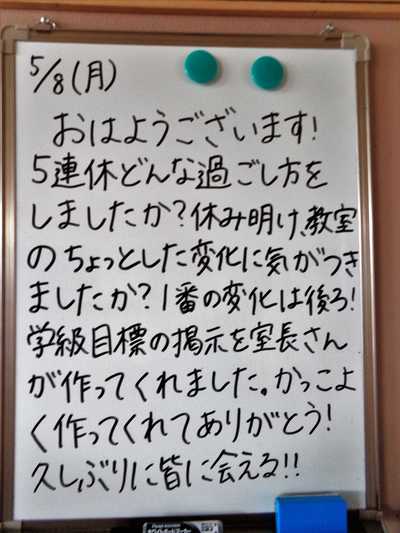 5/8(月)
おはようございます!
5連休どんな過ごし方を
しましたか?休み明け、教室
のちょっとした変化に気がつき
ましたか?1番の変化は後ろ!
学級目標の掲示を室長さん
が作ってくれました。かっこよ
く作ってくれてありがとう!
久しぶりに皆に会える!!
ホワイトボードマーカー